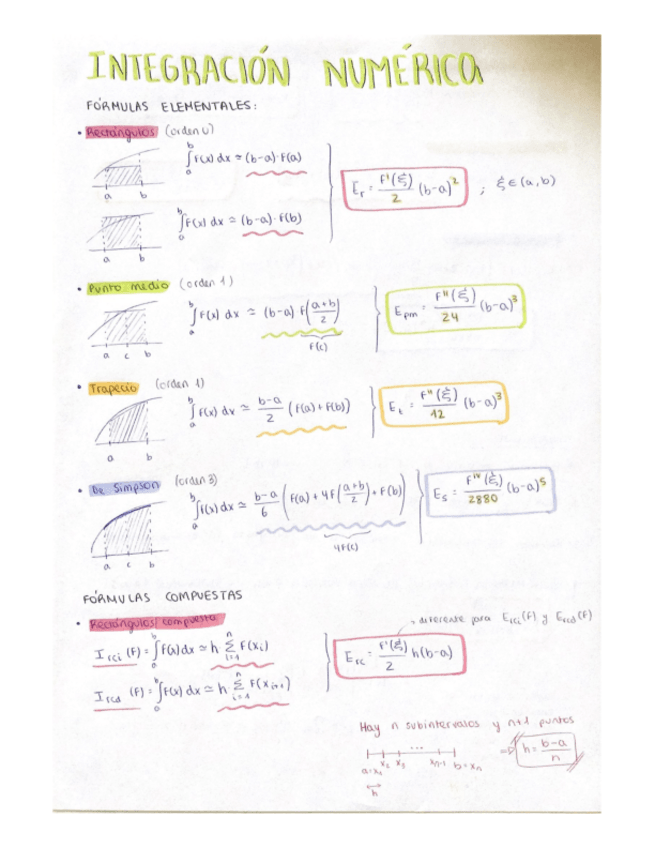 INTEGRACIÓN NUMÉRICA
FÓRMULAS ELEMENTALES:
• Rectángulos (orden 0)
∫ₐᵇ f(x) dx ≃ (b-a)·f(a)
a b
∫ₐᵇ f(x) dx ≃ (b-a)·f(b)
a b
Eᵣ = f'(ξ)/2 (b-a)² ; ξ∈(a,b)
• Punto medio (orden 1)
∫ₐᵇ f(x) dx ≃ (b-a)·f((a+b)/2)
f(c)
a c b
Eₚₘ = f''(ξ)/24 (b-a)³
• Trapecio (orden 1)
∫ₐᵇ f(x) dx ≃ (b-a)/2 (f(a)+f(b))
a b
Eₜ = f''(ξ)/12 (b-a)³
• De Simpson (orden 3)
∫ₐᵇ f(x) dx ≃ (b-a)/6 (f(a)+4f((a+b)/2)+f(b))
4f(c)
a c b
Eₛ = f^IV(ξ)/2880 (b-a)⁵
FÓRMULAS COMPUESTAS
• Rectángulos compuesta
I_rci (f) = ∫ₐᵇ f(x) dx ≃ h Σ_{i=1}^{n} f(xᵢ)
I_rcd (f) = ∫ₐᵇ f(x) dx ≃ h Σ_{i=1}^{n} f(xᵢ₊₁)
→ diferente para E_rci(f) y E_rcd(f)
E_rc = f'(ξ)/2 h(b-a)
Hay n subintervalos y n+1 puntos
a=x₁ x₂ x₃ ... xₙ₋₁ b=xₙ
h
⇒ h = (b-a)/n